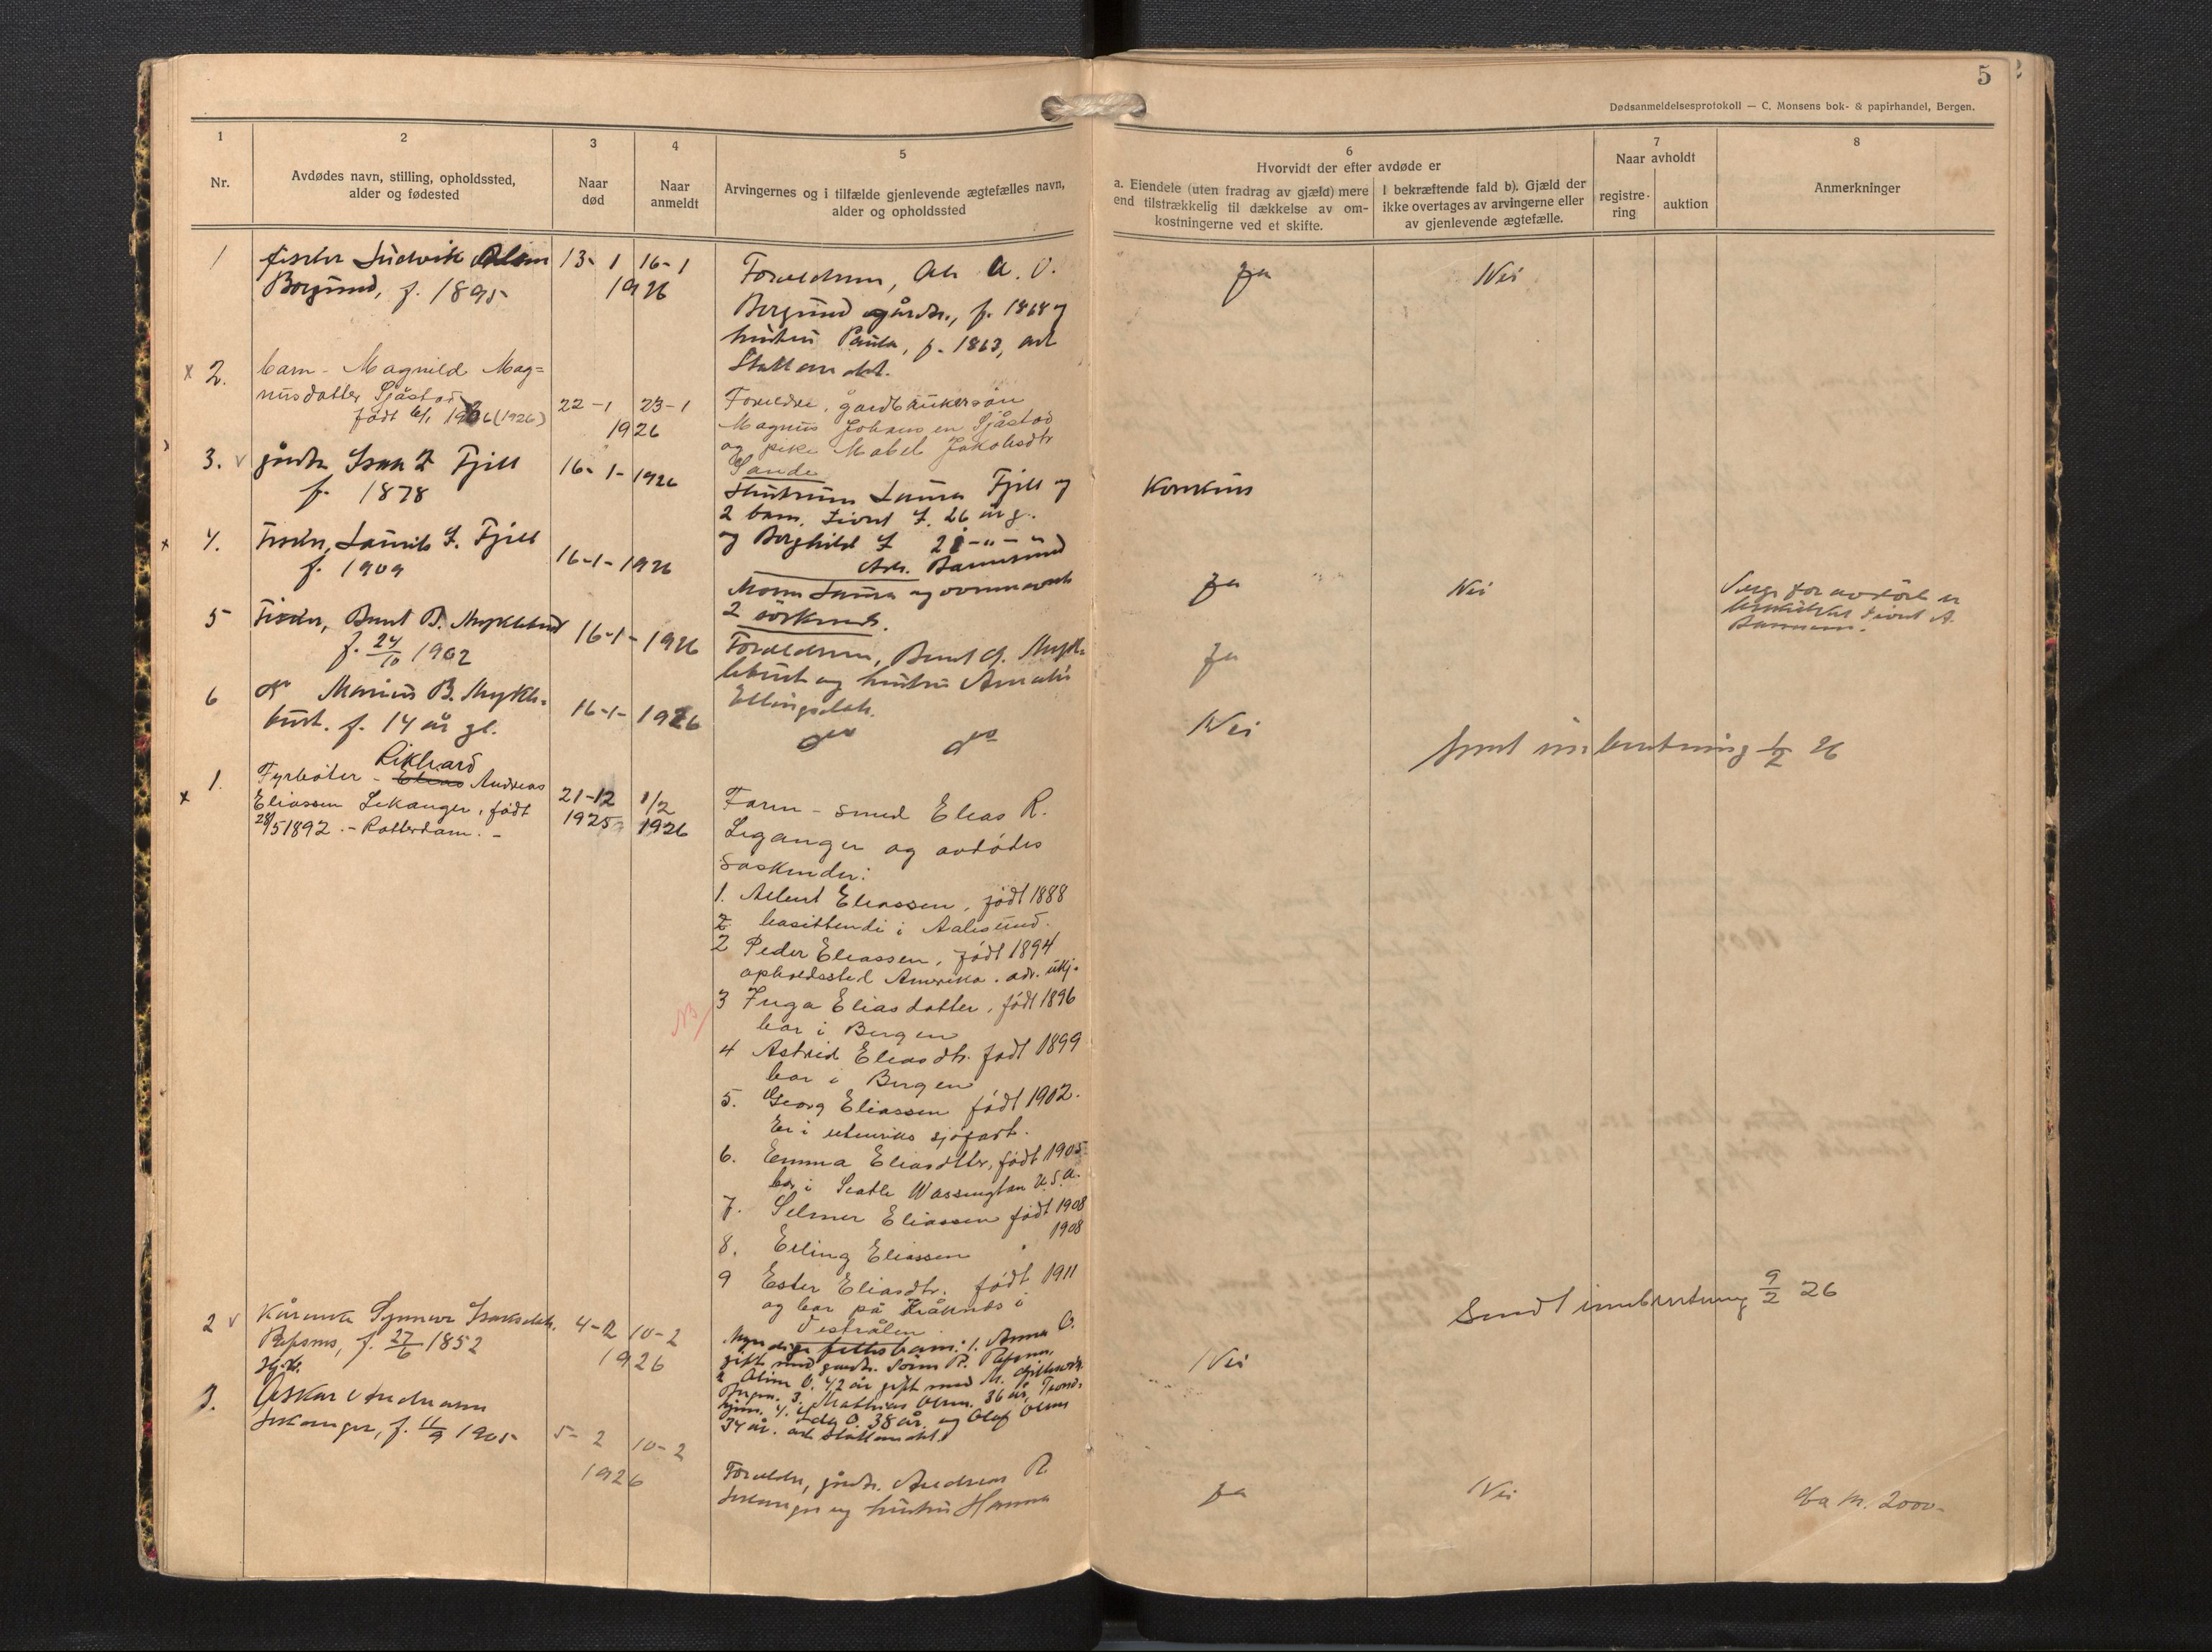 5
Dødsanmeldelsesprotokoll — C. Monsens bok- & papirhandel, Bergen.
1
Nr.
2
Avdødes navn, stilling, opholdssted,
alder og fødested
3
Naar
død
4
Naar
anmeldt
5
Arvingernes og i tilfælde gjenlevende ægtefælles navn,
alder og opholdssted
6
Hvorvidt der efter avdøde er
a. Eiendele (uten fradrag av gjæld) mere
end tilstrækkelig til dækkelse av om-
kostningerne ved et skifte.
I bekræftende fald b). Gjæld der
ikke overtages av arvingerne eller
av gjenlevende ægtefælle.
7
Naar avholdt
registre-
ring
auktion
8
Anmerkninger
1 fisker Ludvik
Borgund, f. 1895
13-1 16-1
1926
Forældrene, A. O.
Borgund gårdbr., f. 1868 og
hustru Paula, f. 1863, adr
Stattlandet.
Ja
Nei
x 2. barn - Magnild Mag=
nusdatter Sjåstad
født 6/1 1926 (1926)
22-1 23-1
1926
Forældre, gardbrukersøn
Magnus Johansen Sjåstad
og pike Mabel Jakobsdtr
Sande
3. v gårdbr. Isak Z Fjell
f. 1878
16-1-1926
Hustruen Laura Fjell og
2 barn, Sivert I. 26 år g.
og Borghild I 21 - " - "
Adr.
Konkurs
x 4. Fisker, Laurits I. Fjell
f. 1909
16-1-1926
Moren Laura og ovennævnte
2 søskende.
Ja
Nei
5 Fisker, Bernt B. Myklebust
f. 24/10 1902
16-1-1926
Forældrene, Bernt A. Mykle
bust og hustru Amalie
Ellingsdatr.
Ja
6 do Marius B. Mykle-
bust. f. 14 år gl.
16-1-1926
do do
Nei
Sendt innberetning 1/2 26
x 1. Rikhard
Fyrbøter - Elias Andreas
Eliassen Lekanger, født
28/5 1892. - Rotterdam. -
21-12 1/2
1925 1926
Faren - smed Elias R.
Leganger og avdødes
søskender:
1. Albert Eliassen, født 1888
bosittende i Aalesund.
2 Peder Eliassen, født 1894
opholdssted Amerika. adr. ukj.
NB
3 Inga Eliasdatter, født 1896
bor i Bergen
4 Astrid Eliasdtr. født 1899
bor i Bergen
5. Georg Eliassen født 1902.
Er i utenriks sjøfart.
6. Emma Eliasdtter, født 1905
bor i Seatle Wassington U.S.A.
7. Selmer Eliassen født 1908
8. Erling Eliassen " 1908
9 Ester Eliasdtr. født 1911
og bor på Kråknes i
Vestrålen
Sendt innberetning 9/2 26
2 v Kårenke Isaksdatr.
Refsnes, f. 27/6 1852
4-2 10-2
1926
Myndige fellesbarn: 1. Anna O.
gift med gardbr. R. Refsnes,
2 Oline O. 42 år gift med M.
Bergen. 3. Mathias Olsen. 36 år, Trond-
hjem. 4. Ida O. 38 år. og Olaf Olsen
34 år. adr Stattlandet.
Nei
3. Oskar Andreasen
Lekanger, f. 11/9 1905
5-2 10-2
1926
Forældre, gårdbr. Andreas R.
Lekanger og hustru Hanna
Ja
Nei
Ca kr. 2000-